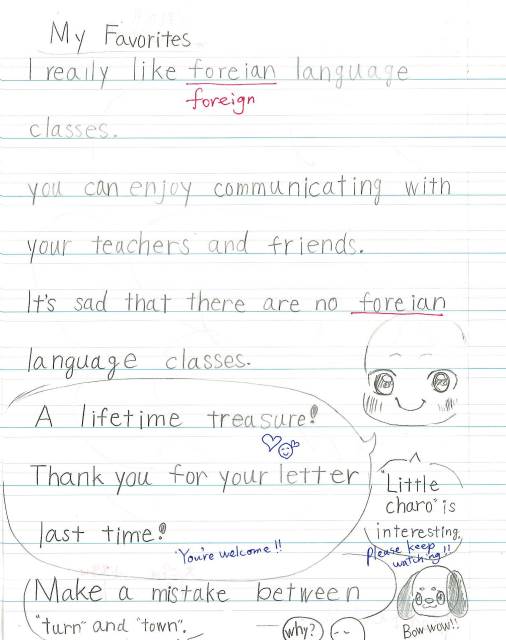 My Favorites
I really like foreian language
foreign
classes.
you can enjoy communicating with
your teachers and friends.
It's sad that there are no foreian
language classes.
A lifetime treasure!
Thank you for your letter
last time!
You're welcome!!
"Little
charo" is
interesting.
Please keep
watching!!
Make a mistake between
"turn" and "town".
why?
Bow wow!!